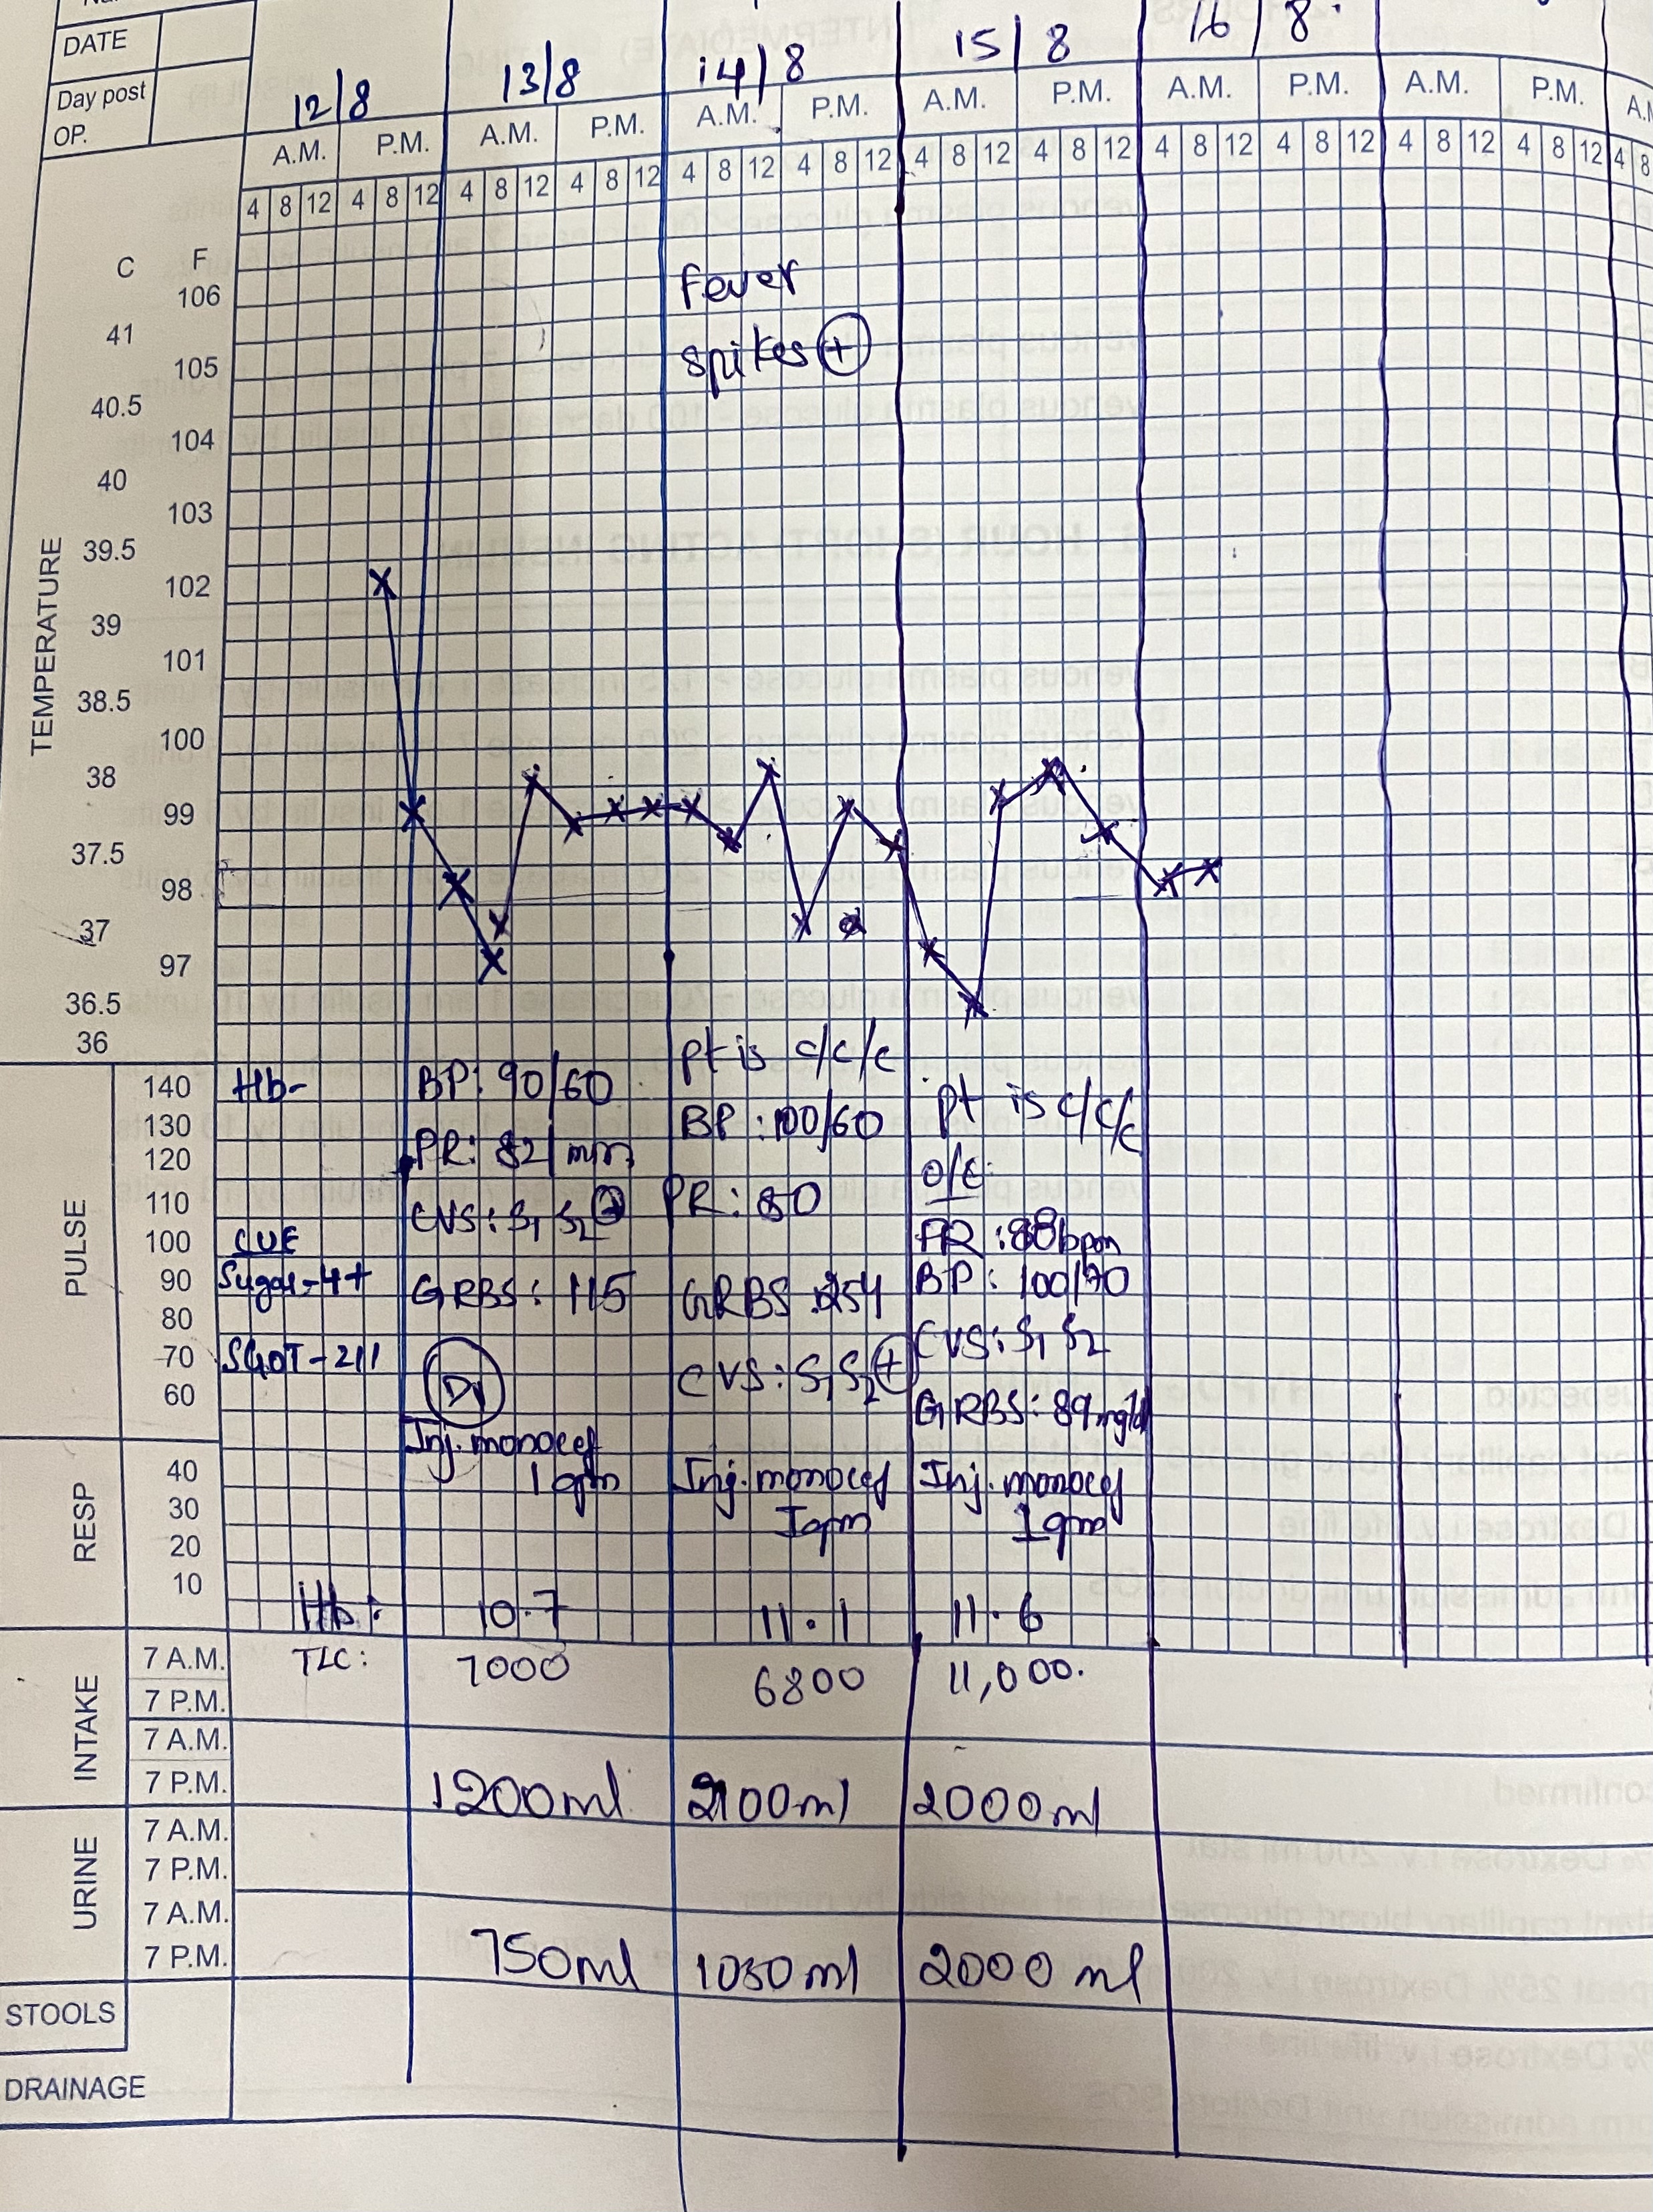 DATE
Day post
OP.
12/8 13/8 14/8 15/8 16/8.
A.M. P.M. A.M. P.M. A.M. P.M. A.M. P.M. A.M. P.M. A.M. P.M.
4 8 12 4 8 12 4 8 12 4 8 12 4 8 12 4 8 12 4 8 12 4 8 12 4 8 12 4 8 12 4 8 12 4 8 12 4 8
TEMPERATURE
C F
106
41
105
40.5
104
40
103
39.5
102
39
101
38.5
100
38
99
37.5
98
37
97
36.5
36
fever
spikes +
PULSE
140
130
120
110
100
90
80
70
60
Hb-
CUE
Sugar-4+
SGOT-211
BP: 90/60
PR: 82/min
CVS: S1 S2
GRBS: 115
Inj. monocef
1 gm
pt is c/c/c
BP: 100/60
PR: 80
GRBS: 254
CVS: S1S2 +
Inj. monocef
1gm
pt is c/c/c
o/e:
PR: 88bpm
BP: 100/70
CVS: S1 S2
GRBS: 89mg/dl
Inj. monocef
1gm
RESP
40
30
20
10
Hb: 10.7 11.1 11.6
TLC: 7000 6800 11,000.
INTAKE
7 A.M.
7 P.M.
7 A.M.
7 P.M.
1200ml. 2100ml 2000ml
URINE
7 A.M.
7 P.M.
7 A.M.
7 P.M.
750ml 1050ml 2000 ml
STOOLS
DRAINAGE